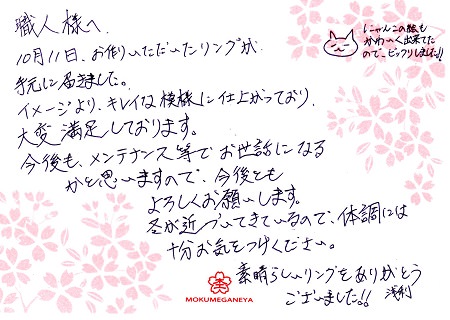 職人様へ
10月11日、お作りいただいたリングが
手元に届きました。
イメージより、キレイな模様に仕上がっており、
大変満足しております。
今後も、メンテナンス等でお世話になる
かと思いますので、今後とも
よろしくお願いします。
冬が近づいてきているので、体調には
十分お気をつけください。
素晴らしいリングをありがとう
ございました!!
浅利
にゃんこの絵も
かわいく出来てた
ので、ビックリしました!!
MOKUMEGANEYA